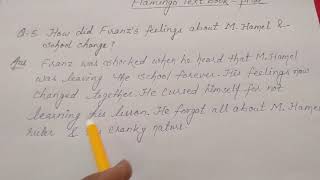 Flamingo Text book - prose
Q:5 How did Franz's feelings about M. Hamel &
school change?
Ans Franz was shocked when he heard that M. Hamel
was leaving the school forever. His feelings now
changed together. He cursed himself for not
learning his lesson. He forgot all about M. Hamel
ruler & cranky nature.